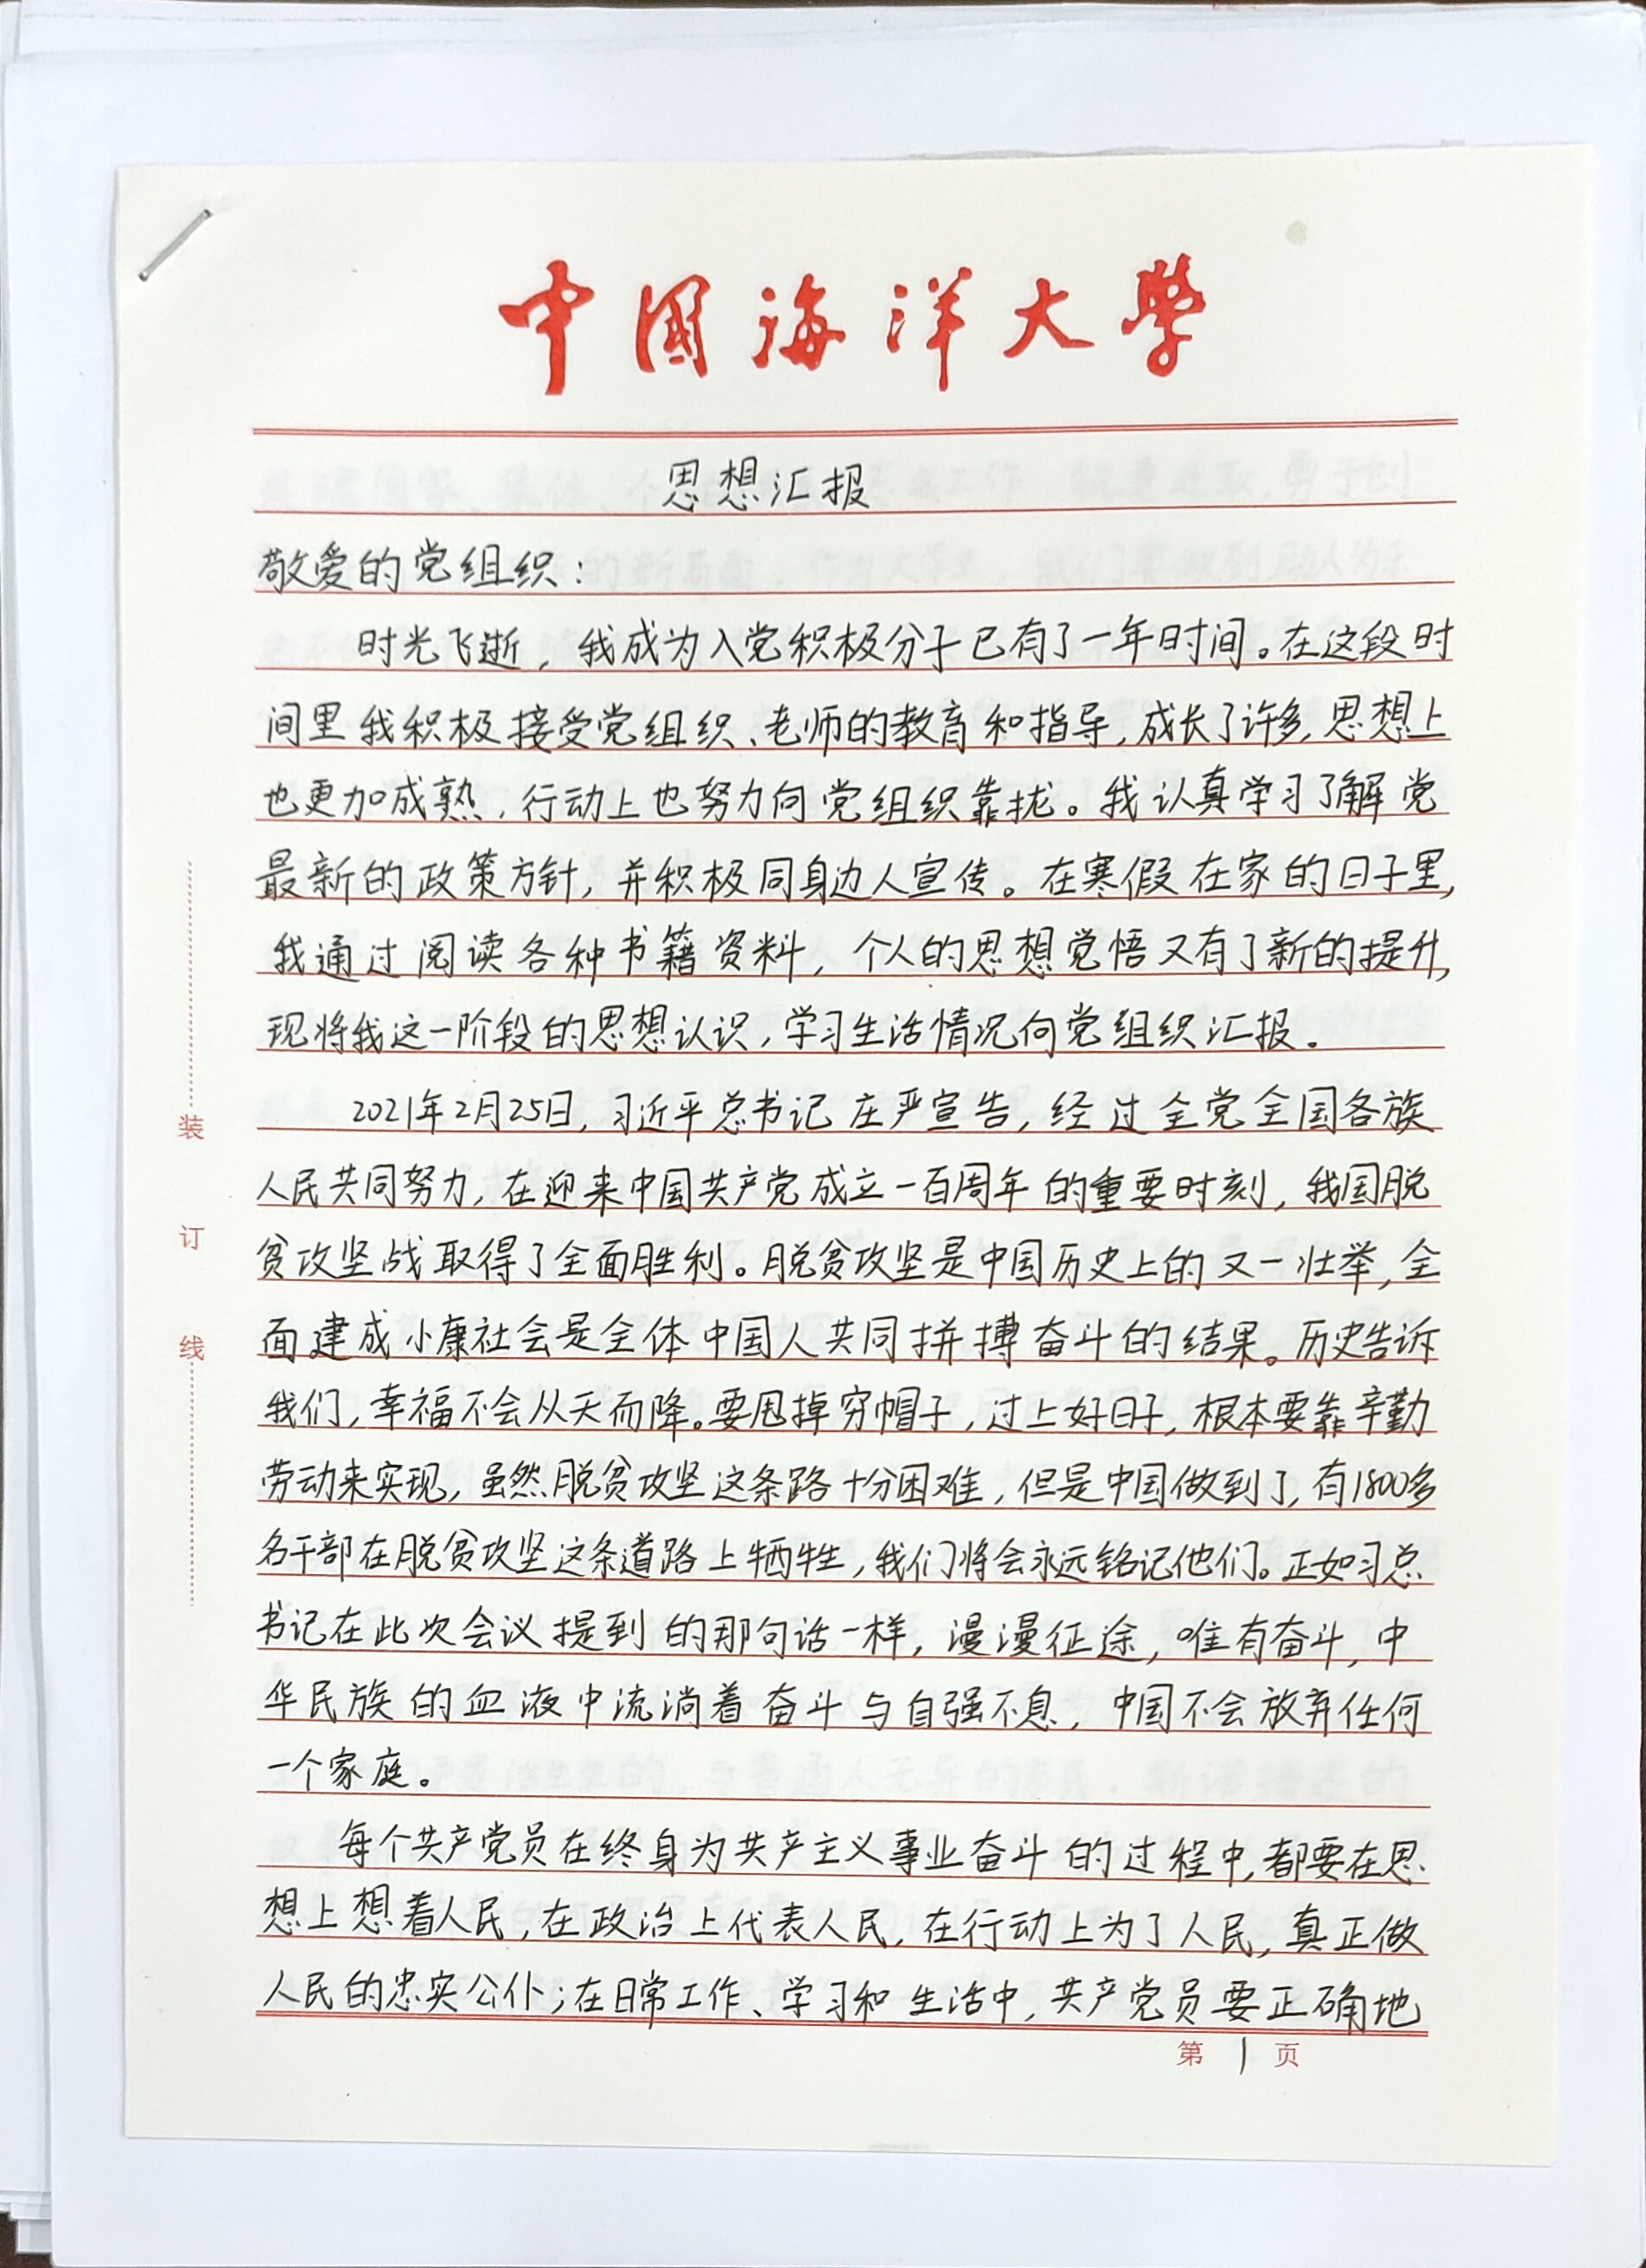 中国海洋大學
思想汇报
敬爱的党组织：
时光飞逝，我成为入党积极分子已有了一年时间。在这段时
间里我积极接受党组织、老师的教育和指导，成长了许多，思想上
也更加成熟，行动上也努力向党组织靠拢。我认真学习了解党
最新的政策方针，并积极同身边人宣传。在寒假在家的日子里，
我通过阅读各种书籍资料，个人的思想觉悟又有了新的提升，
现将我这一阶段的思想认识，学习生活情况向党组织汇报。
2021年2月25日，习近平总书记庄严宣告，经过全党全国各族
人民共同努力，在迎来中国共产党成立一百周年的重要时刻，我国脱
贫攻坚战取得了全面胜利。脱贫攻坚是中国历史上的又一壮举，全
面建成小康社会是全体中国人共同拼搏奋斗的结果。历史告诉
我们，幸福不会从天而降。要甩掉穷帽子，过上好日子，根本要靠辛勤
劳动来实现，虽然脱贫攻坚这条路十分困难，但是中国做到了，有1800多
名干部在脱贫攻坚这条道路上牺牲，我们将会永远铭记他们。正如习总
书记在此次会议提到的那句话一样，漫漫征途，唯有奋斗，中
华民族的血液中流淌着奋斗与自强不息，中国不会放弃任何
一个家庭。
每个共产党员在终身为共产主义事业奋斗的过程中，都要在思
想上想着人民，在政治上代表人民，在行动上为了人民，真正做
人民的忠实公仆；在日常工作、学习和生活中，共产党员要正确地
第1页
装
订
线